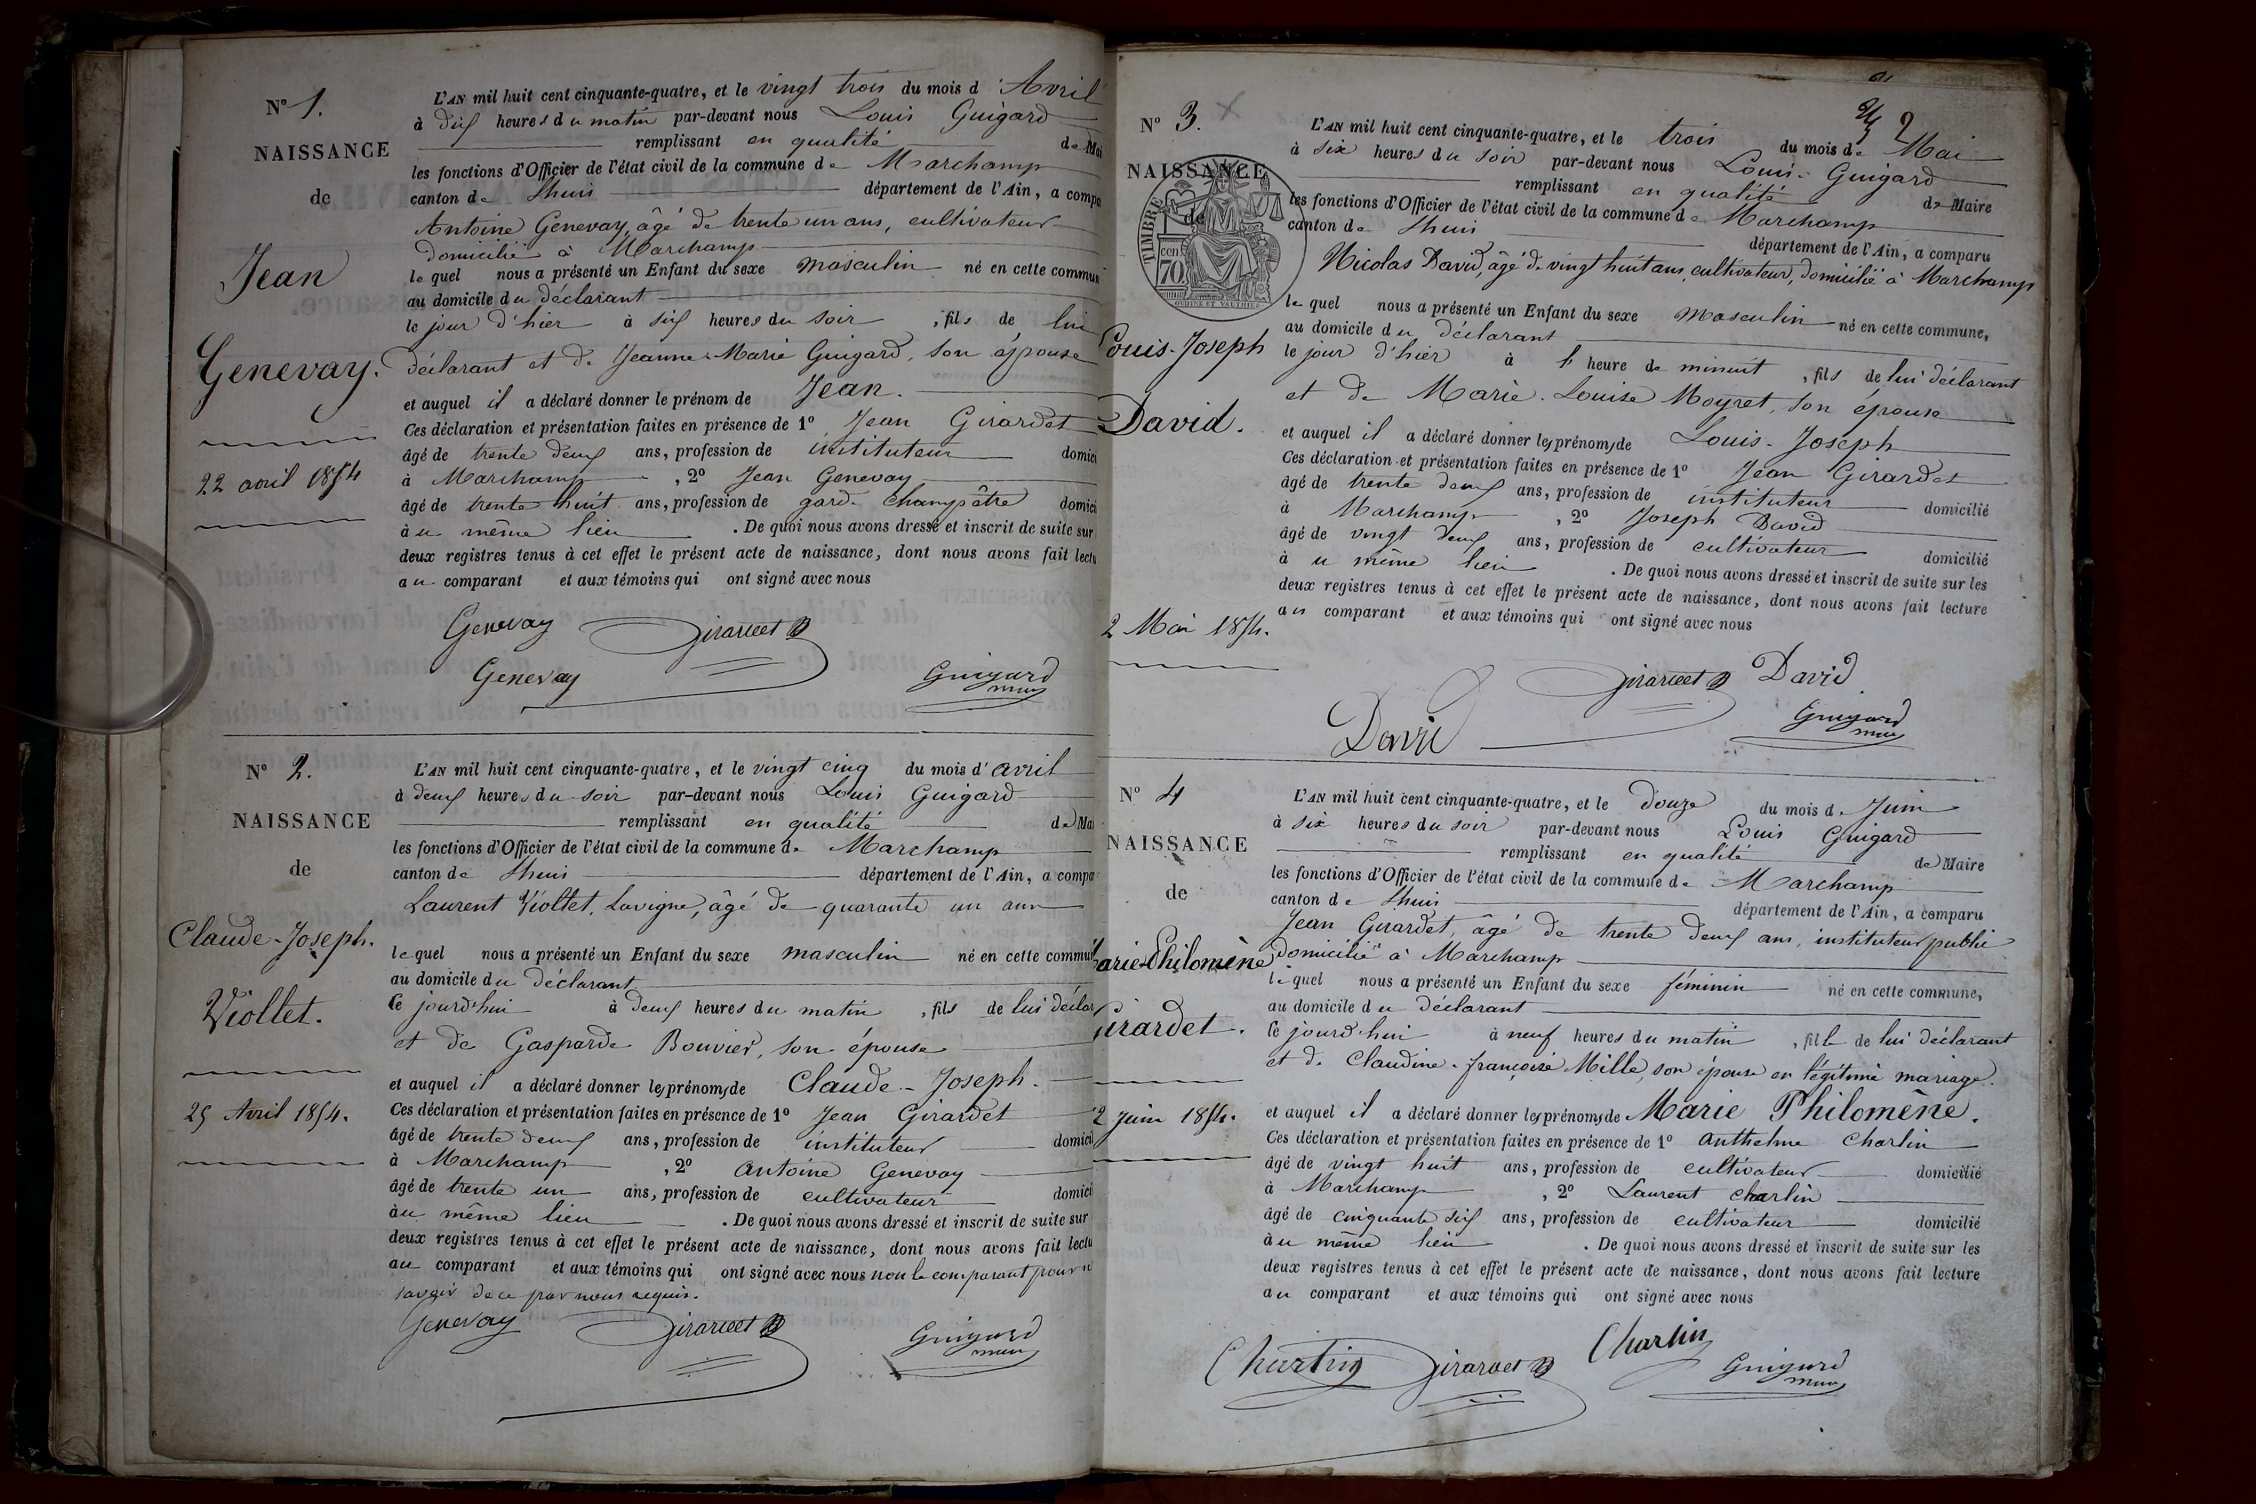 Nº 1.
NAISSANCE
de
Jean
Genevay.
22 avril 1854
L'AN mil huit cent cinquante-quatre, et le vingt trois du mois d'Avril
à dix heures du matin par-devant nous Louis Guigard
remplissant en qualité de Mai
les fonctions d'Officier de l'état civil de la commune de Marchamp
canton de Lhuis département de l'Ain, a compa
Antoine Genevay, âgé de trente un ans, cultivateur
domicilié à Marchamp
lequel nous a présenté un Enfant du sexe masculin né en cette commun
au domicile du déclarant
le jour d'hier à six heures du soir, fils de lui
déclarant et de Jeanne-Marie Guigard, son épouse
et auquel il a déclaré donner le prénom de Jean.
Ces déclaration et présentation faites en présence de 1º Jean Girardet
âgé de trente deux ans, profession de instituteur domici
à Marchamp, 2º Jean Genevay
âgé de trente huit ans, profession de garde champêtre domici
à u même lieu. De quoi nous avons dressé et inscrit de suite sur
deux registres tenus à cet effet le présent acte de naissance, dont nous avons fait lectu
au comparant et aux témoins qui ont signé avec nous
Genevay Girardet
Genevay Guigard
maire
Nº 2.
NAISSANCE
de
Claude-Joseph.
Viollet.
25 Avril 1854.
L'AN mil huit cent cinquante-quatre, et le vingt cinq du mois d'avril
à deux heures du soir par-devant nous Louis Guigard
remplissant en qualité de Mai
les fonctions d'Officier de l'état civil de la commune de Marchamp
canton de Lhuis département de l'Ain, a compa
Laurent Viollet, Lavigne, âgé de quarante un ans
lequel nous a présenté un Enfant du sexe masculin né en cette commun
au domicile du déclarant
ce jourd'hui à deux heures du matin, fils de lui déclar
et de Gasparde Bouvier, son épouse
et auquel il a déclaré donner les prénoms de Claude-Joseph.
Ces déclaration et présentation faites en présence de 1º Jean Girardet
âgé de trente deux ans, profession de instituteur domici
à Marchamp, 2º Antoine Genevay
âgé de trente un ans, profession de cultivateur domici
à u même lieu. De quoi nous avons dressé et inscrit de suite sur
deux registres tenus à cet effet le présent acte de naissance, dont nous avons fait lectu
au comparant et aux témoins qui ont signé avec nous non le comparant pour n
savoir de ce par nous requis.
Genevay Girardet Guigard
maire
2
Nº 3.
NAISSANCE
de
TIMBRE
70 cen
Louis-Joseph
David.
2 Mai 1854.
L'AN mil huit cent cinquante-quatre, et le trois du mois de Mai
à six heures du soir par-devant nous Louis Guigard
remplissant en qualité de Maire
les fonctions d'Officier de l'état civil de la commune de Marchamp
canton de Lhuis département de l'Ain, a comparu
Nicolas David, âgé de vingt huit ans, cultivateur, domicilié à Marchamp
lequel nous a présenté un Enfant du sexe masculin né en cette commune,
au domicile du déclarant
le jour d'hier à l'heure de minuit, fils de lui déclarant
et de Marie-Louise Moyret, son épouse
et auquel il a déclaré donner les prénoms de Louis-Joseph
Ces déclaration et présentation faites en présence de 1º Jean Girardet
âgé de trente deux ans, profession de instituteur domicilié
à Marchamp, 2º Joseph David
âgé de vingt deux ans, profession de cultivateur domicilié
à u même lieu. De quoi nous avons dressé et inscrit de suite sur les
deux registres tenus à cet effet le présent acte de naissance, dont nous avons fait lecture
au comparant et aux témoins qui ont signé avec nous
Girardet David
David Guigard
maire
Nº 4
NAISSANCE
de
arie-Philomène
Girardet.
2 juin 1854.
L'AN mil huit cent cinquante-quatre, et le douze du mois de Juin
à six heures du soir par-devant nous Louis Guigard
remplissant en qualité de Maire
les fonctions d'Officier de l'état civil de la commune de Marchamp
canton de Lhuis département de l'Ain, a comparu
Jean Girardet, âgé de trente deux ans, instituteur public
domicilié à Marchamp
lequel nous a présenté un Enfant du sexe féminin né en cette commune,
au domicile du déclarant
ce jourd'hui à neuf heures du matin, fille de lui déclarant
et de Claudine-françoise Mille, son épouse en légitime mariage.
et auquel il a déclaré donner les prénoms de Marie Philomène.
Ces déclaration et présentation faites en présence de 1º Anthelme Charlin
âgé de vingt huit ans, profession de cultivateur domicilié
à Marchamp, 2º Laurent Charlin
âgé de cinquante six ans, profession de cultivateur domicilié
à u même lieu. De quoi nous avons dressé et inscrit de suite sur les
deux registres tenus à cet effet le présent acte de naissance, dont nous avons fait lecture
au comparant et aux témoins qui ont signé avec nous
Charlin Girardet Charlin Guigard
maire